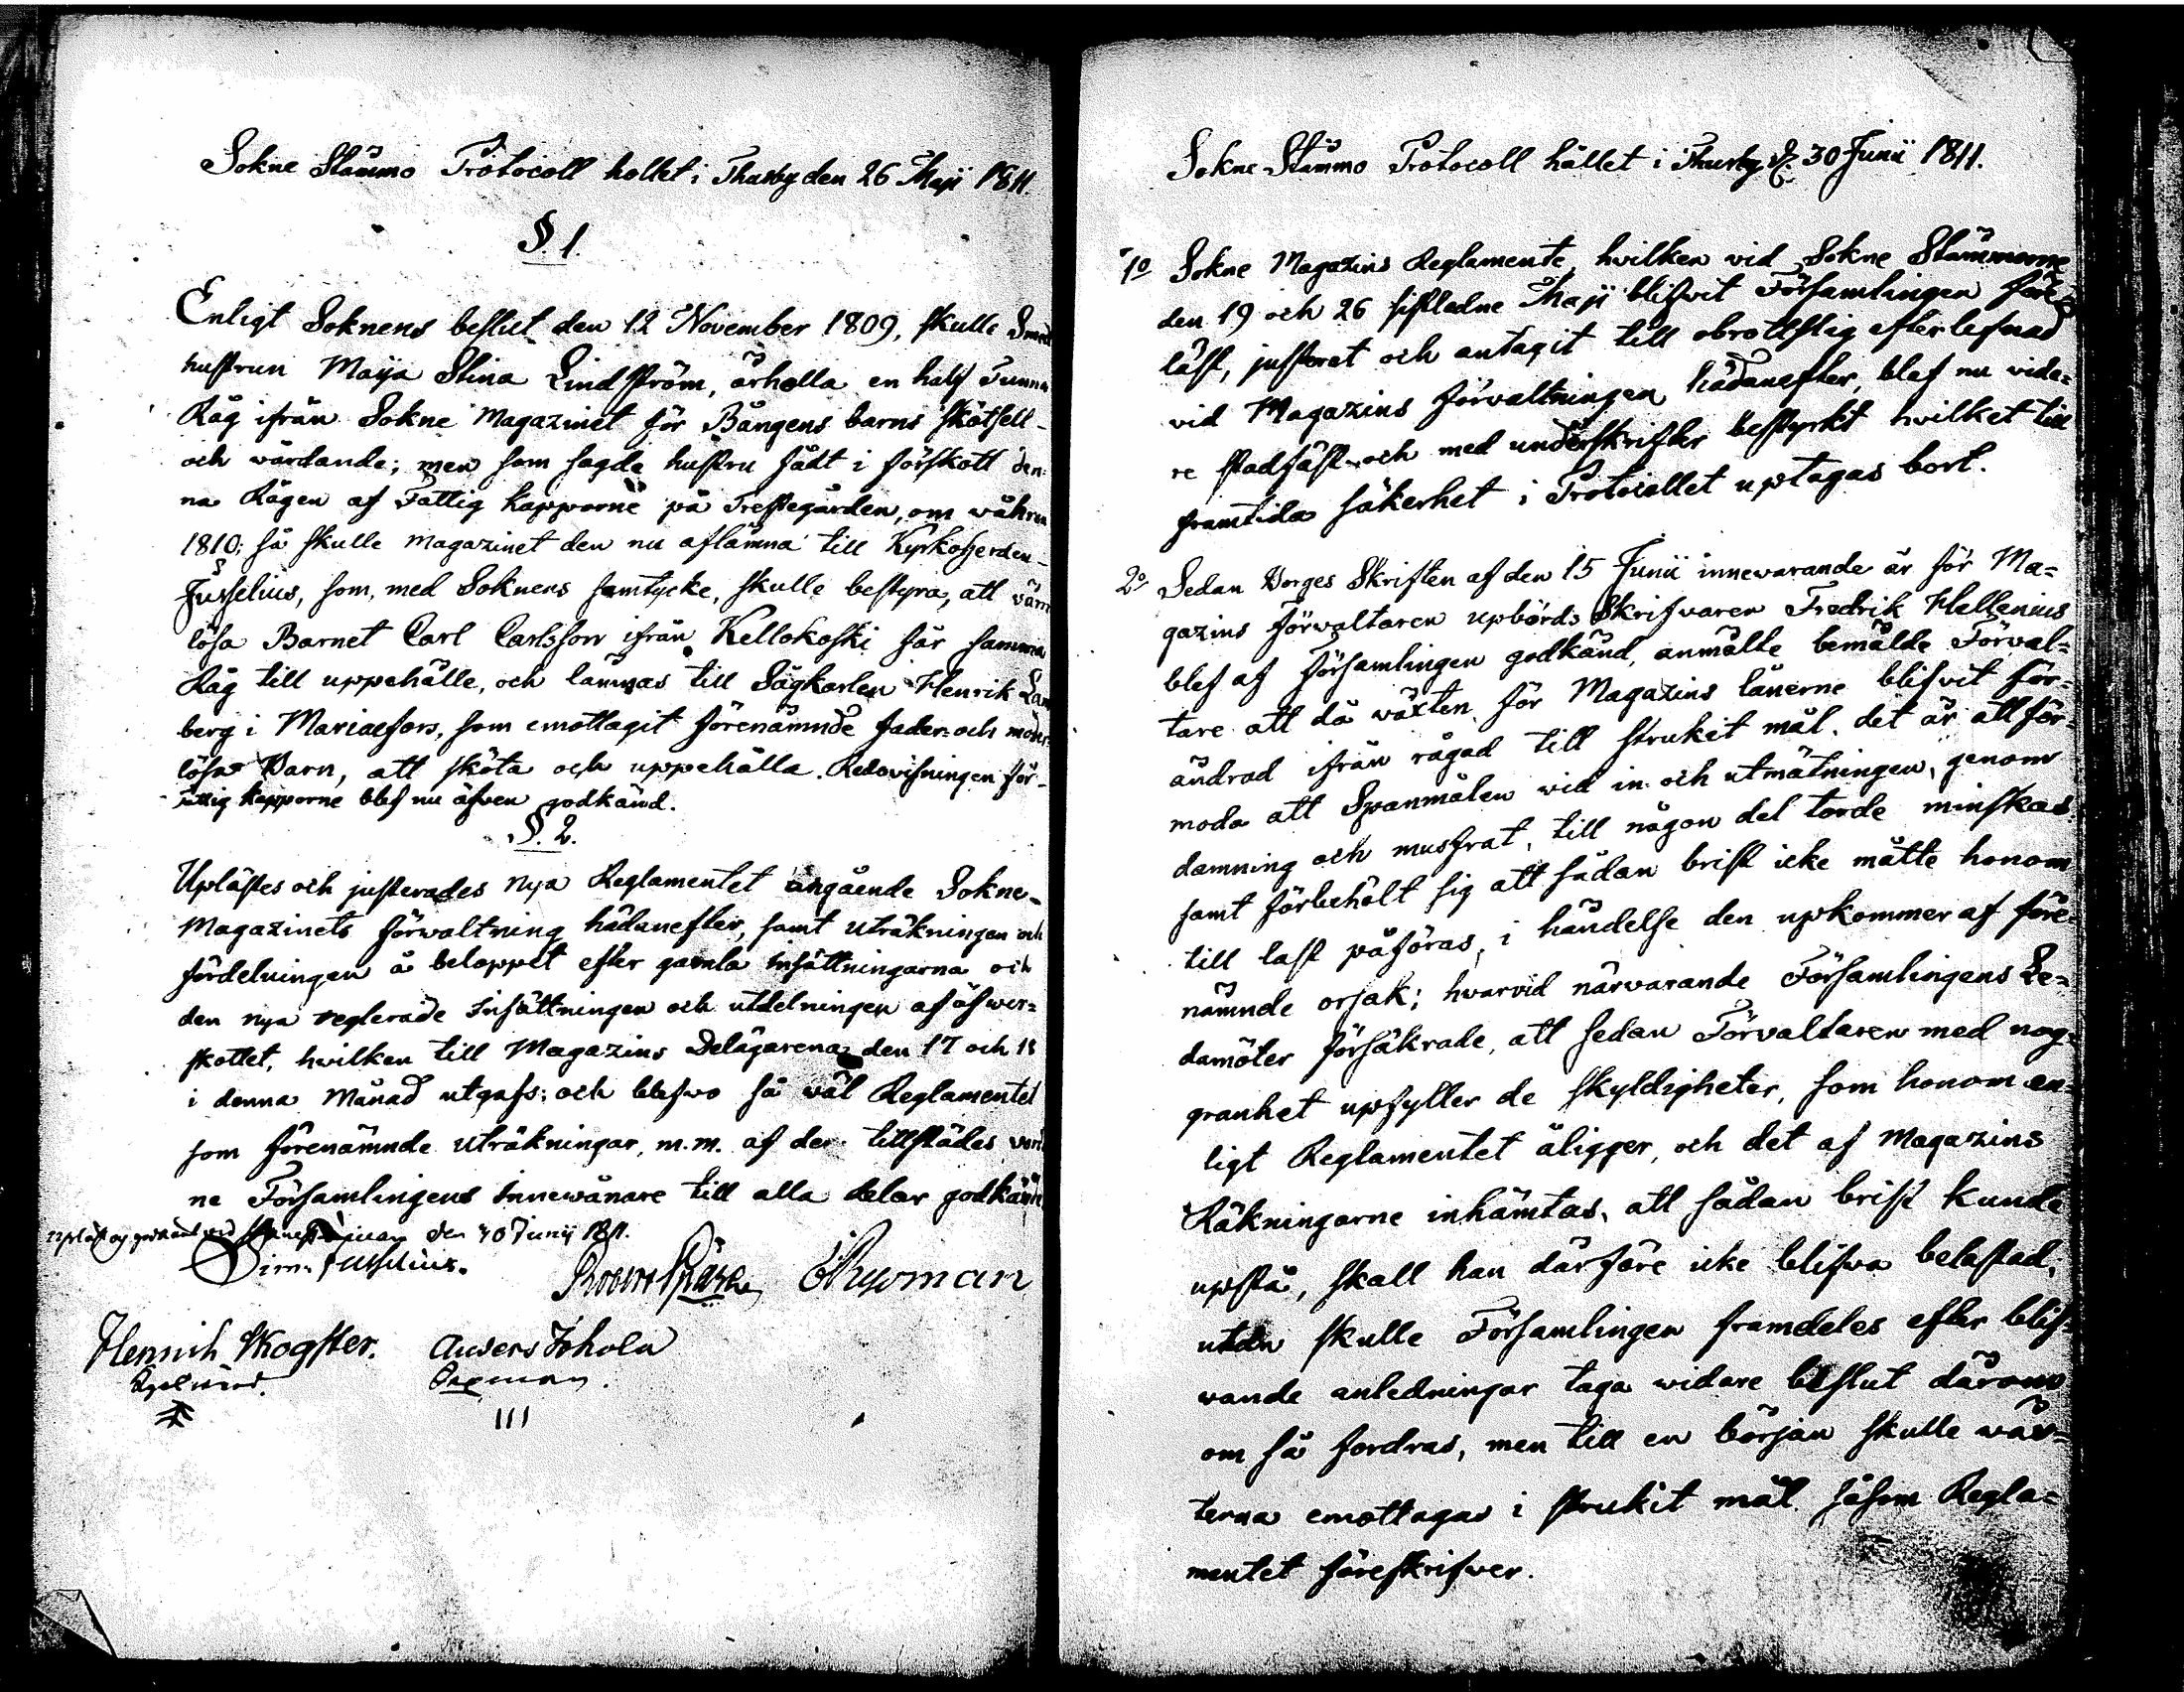 Sokne Stämmo Protocoll hollet i Thusby den 26 Maji 1811.
§. 1.
Enligt Soknens beslut den 12 November 1809, skulle Smed
hustrun Maija Stina Lindström, ärholla en half Tunna
Råg ifrån Sokne Magazinet för Bångens barns skötsell
och wårdande; men som sagde hustru fådt i förskott den-
na Rågen af Fattig kapporne på Prestegården, om wåhren
1810; så skulle magazinet den nu aflämna till Kyrkoherden
Jusselius, som, med Soknens samtycke, skulle bestyra, att värn
lösa Barnet Carl Carlsson ifrån Kellokoski får samma
Råg till uppehälle, och lämnas till Sågkarlen Henrik
berg i Mariaefors, som emottagit förenämnde fader- och moder-
lösa Barn, att sköta och uppehålla. Redovisningen för
fattig kapporne blef nu äfven godkänd.
§. 2.
Uplästes och justerades nya Reglamentet angående Sokne-
Magazinets förwaltning hädanefter, samt uträkningen och
fördelningen å beloppet efter gamla insättningarna och
den nya reglerade Insättningen och utdelningen af öfwer-
skottet, hvilken till Magazins Delägarena den 17 och 18
i denna månad utgafs; och blefwo så wäl Reglamentet
som förenämnde uträkningar, m.m. af der tillstädes vara
ne Församlingens Innewånare till alla delar godkänn
Upläst og godkänt vid den 30 Junij 1811.
Sim. Jusselius.
Henrich Skogster. Anders Johola
|||
Sokne-Stämmo Protocoll hållet i Thusby d. 30 Junii 1811.
1o Sokne Magazins Reglamente, hvilken vid Sokne Stämmorne
den 19 och 26 sistledne Maji blifwit Församlingen före-
läst, justerat och antagit till obrottslig efterlefnad
vid Magazins förvaltningen hädanefter, blef nu vida-
re stadfäst och med underskrifter bestyrkt hvilket till
framtida säkerhet i Protocollet uptagas bort.
2o Sedan Borges Skriften af den 15 Junii innewarande år för Ma-
gazins förwaltaren upbörds Skrifvaren Fredrik Hellenius
blef af församlingen godkänd, anmälte bemälde Förval-
tare att då wäxten för Magazins lånerne blifvit för-
ändrad ifrån rågad till strukit mål, det är att för-
moda att Spanmålen vid in- och utmätningen, genom
damning och musfrat, till någon del torde minskas
samt förbehölt sig att sådan brist icke måtte honom
till last påföras, i händelse den upkommer af före-
nämnde orsak; hvarvid närvarande Församlingens Le-
damöter försäkrade, att sedan Förvaltaren med nog-
granhet upfyller de skyldigheter, som honom en-
ligt Reglamentet åligger, och det af Magazins
Räkningarne inhämtas, att sådan brist kunde
upstå, skall han därföre icke blifwa belastad,
utan skulle Församlingen framdeles efter blif-
wande anledningar taga widare beslut därom
om så fordras, men till en början skulle wäx-
terna emottagas i strukit mål såsom Regla-
mentet föreskrifwer.